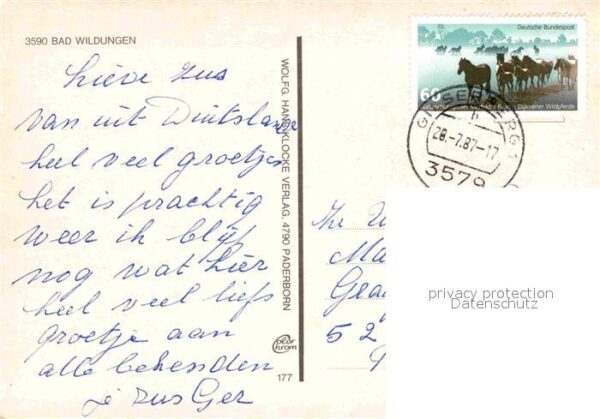 3590 BAD WILDUNGEN
Lieve zus
van uit Duitsland
heel veel groetjes
het is prachtig
weer ik blijf
nog wat hier
heel veel liefs
groetje aan
alle bekenden
je zus Ger
WOLFG. HANS KLOCKE VERLAG, 4790 PADERBORN
Color
chrom
177
Deutsche Bundespost
60
Dülmener Wildpferde
GILSERBERG 1
h
28.-7.87-17
3579
Ma
52
privacy protection
Datenschutz